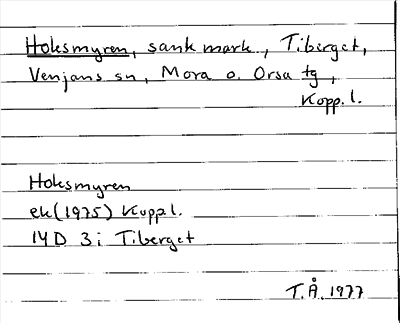 Holksmyren, sank mark, Tiberget,
Venjans sn, Mora o. Orsa tg,
Kopp. l.
Holksmyren
ek (1975) Kopp l.
14D 3i Tiberget
T.Å. 1977